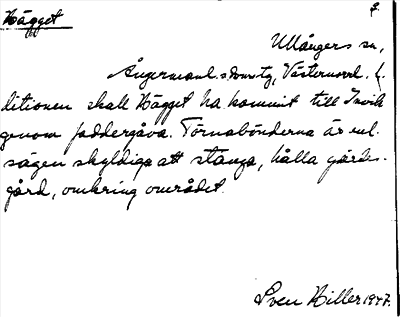 Hägget
Ullångers sn,
Ångermanl. s. domstg, Västernorrl. l.
ditionen skall Hägget ha kommit till Invik
genom faddergåva. Törnabönderna är enl.
sägen skyldiga att stänga, hålla gärdes-
gård, omkring området.
Sven Hiller 1947.